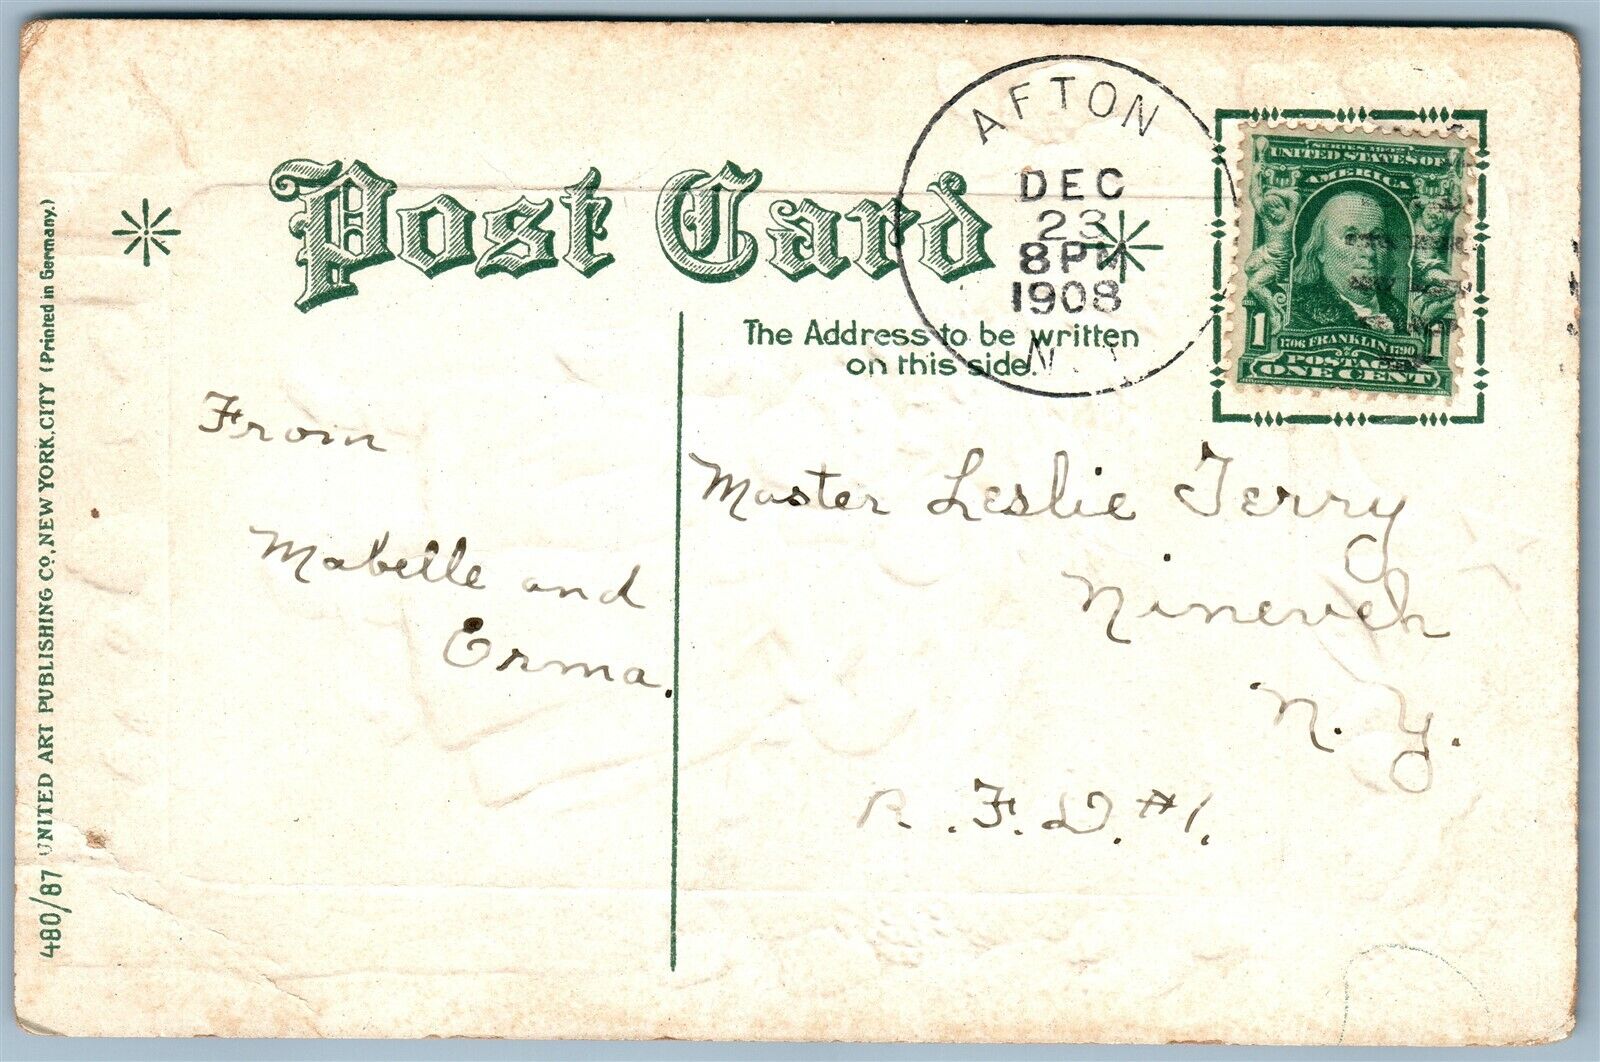 Post Card
AFTON
DEC
23
8PM
1908
N.Y.
SERIES 1902
UNITED STATES OF
AMERICA
1 1
1706 FRANKLIN 1790
POSTAGE
ONE CENT
The Address to be written
on this side.
From
Mabelle and
Erma.
Master Leslie Terry
Nineveh
N. Y.
R. F. D. #1.
480/87 UNITED ART PUBLISHING CO, NEW YORK.CITY (Printed in Germany.)